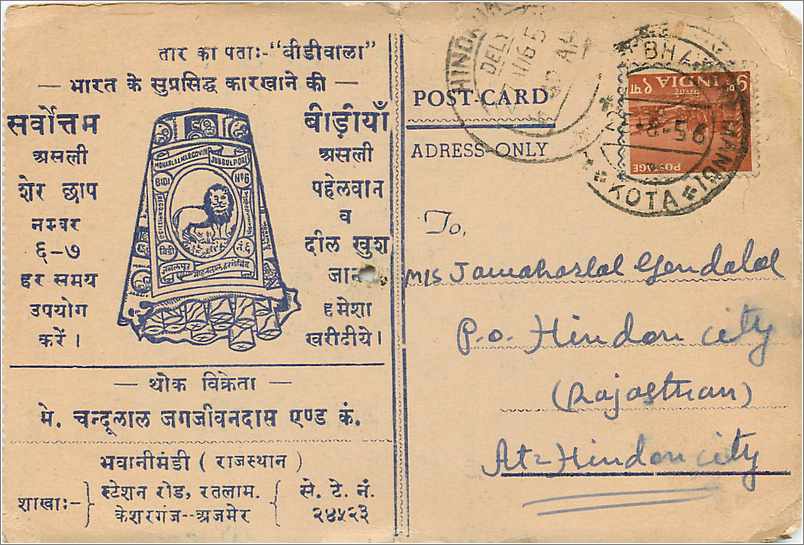 तार का पता:-"बीडीवाला"
— भारत के सुप्रसिद्ध कारखाने की —
सर्वोत्तम
असली
शेर छाप
नम्बर
६-७
हर समय
उपयोग
करें।
BIDI
Nº6
बिडी
नं.६
जबलपुर
बीड़ीयाँ
असली
पहेलवान
व
दील खुश
जान
हमेशा
खरीदीये।
— थोक विक्रेता —
मे. चन्दूलाल जगजीवनदास एण्ड कं.
भवानीमंडी ( राजस्थान )
शाखा:- स्टेशन रोड, रतलाम.
केशरगंज--अजमेर
से. टे. नं.
२४५२३
POST-CARD
ADRESS-ONLY
HINDAUN
DELY
KOTA
INDIA
POSTAGE
To,
M/S Jawaharlal Gendalal
P.O. Hindon city
(Rajasthan)
At= Hindon city